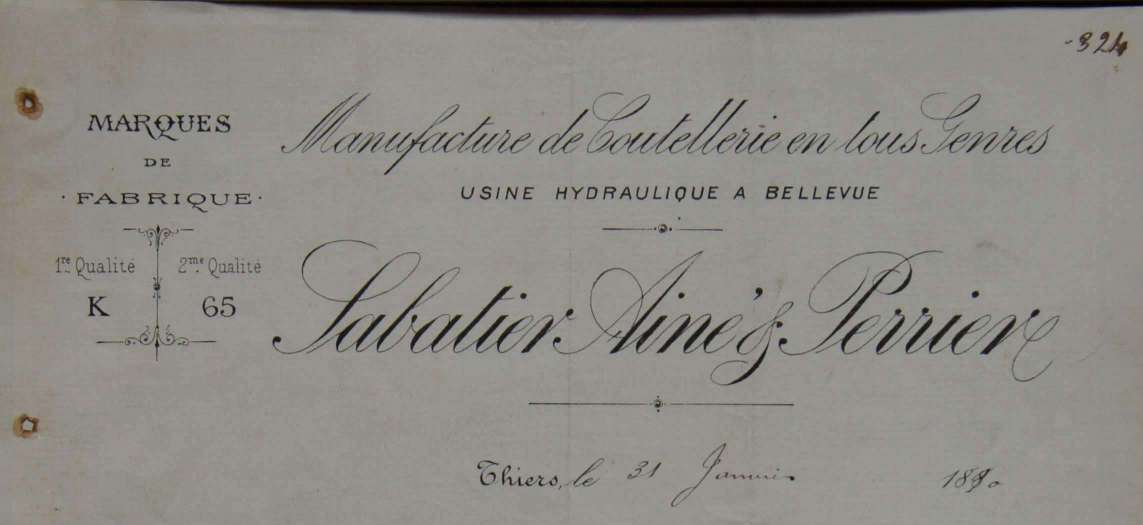 -324
MARQUES
DE
· FABRIQUE ·
1re Qualité 2me Qualité
K 65
Manufacture de Coutellerie en tous Genres
USINE HYDRAULIQUE A BELLEVUE
Sabatier Ainé & Perrier
Thiers, le 31 Janvier 1890